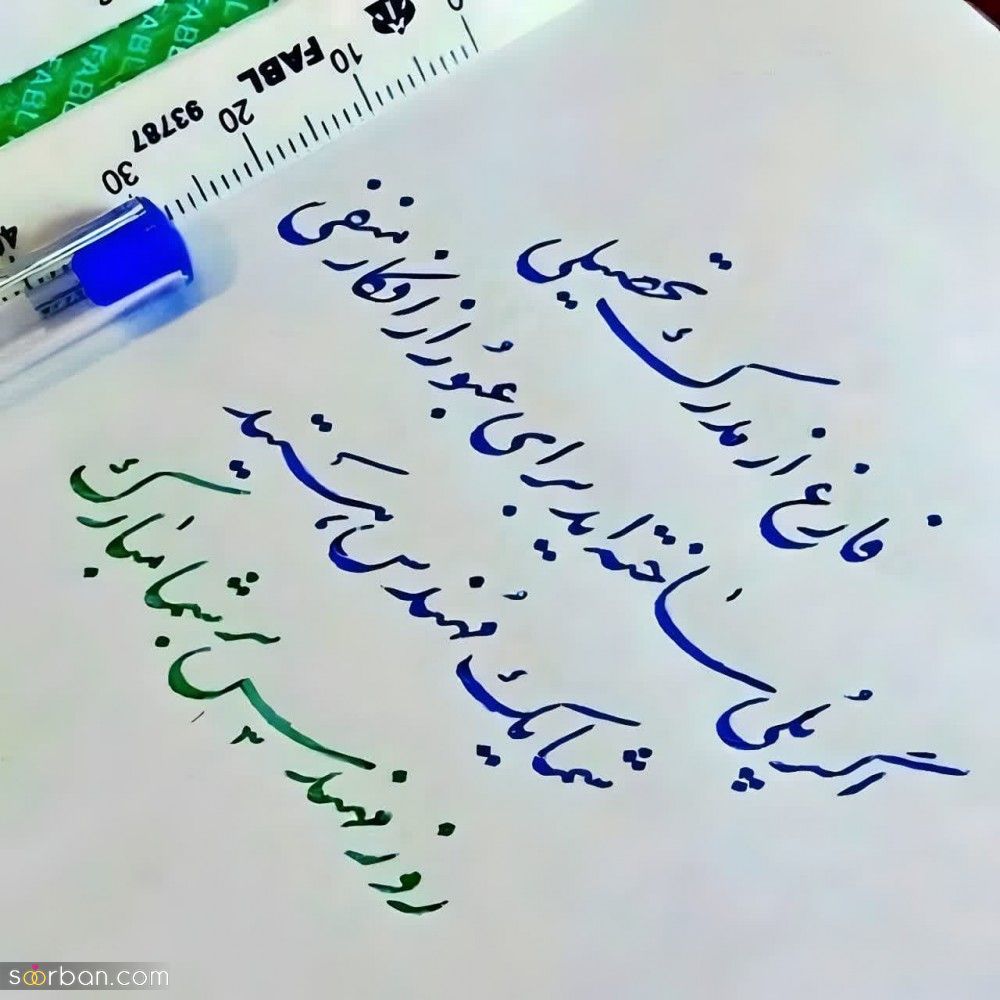 فارغ از مدرک تحصیلی
اگر پُلی ساخته اید برای عبُور از افکار منفی
شما یک مُهندس هستید
روز مهندسین بر شما مبارک
FABL
93787
0 10 20 30
FABL
soorban.com